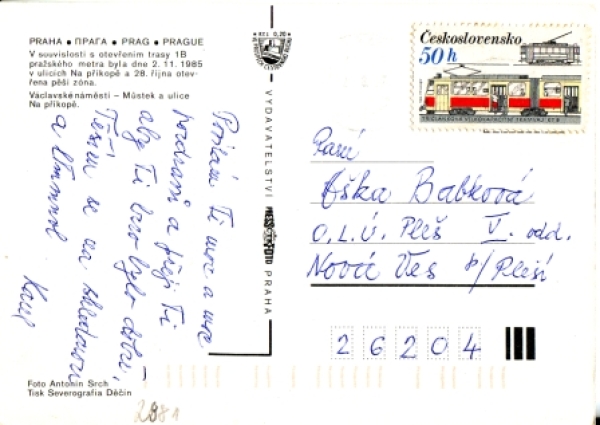 PRAHA • ПРАГА • PRAG • PRAGUE
V souvislosti s otevřením trasy 1B
pražského metra byla dne 2. 11. 1985
v ulicích Na příkopě a 28. října otev-
řena pěší zóna.
Václavské náměstí – Můstek a ulice
Na příkopě.
Posílám Ti moc a moc
pozdravů a přeji Ti
aby Ti brzo bylo dobře,
Těším se na shledanou
a
Karel
Foto Antonín Srch
Tisk Severografia Děčín
2981
VYDAVATELSTVÍ PRESSFOTO PRAHA
Kčs 0,20
Československo
50 h
Paní
Babková
O.L.Ú. Pleš V. odd.
Nová Ves p/Pleší
26204